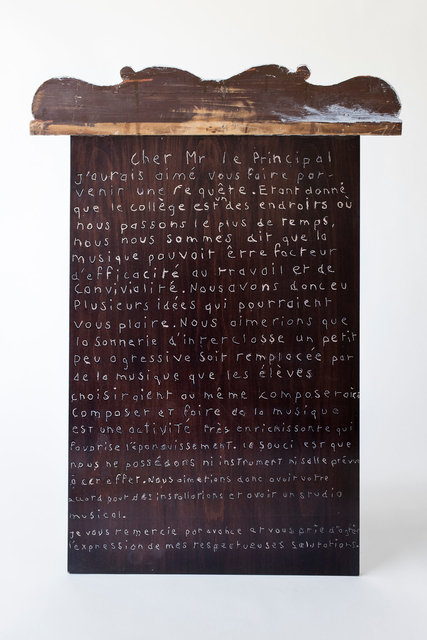 Cher Mr le Principal
J'aurais aimé vous faire par-
venir une requête. Etant donné
que le collège est un des endroits où
nous passons le plus de temps,
nous nous sommes dit que la
musique pouvait être facteur
d'efficacité au travail et de
convivialité. Nous avons donc eu
Plusieurs idées qui pourraient
vous plaire. Nous aimerions que
la sonnerie d'interclasse un petit
peu agressive soit remplacée par
de la musique que les élèves
choisiraient ou même composeraient
Composer et faire de la musique
est une activité très enrichissante qui
favorise l'épanouissement. le souci est que
nous ne possédons ni instrument ni salle prévue
à cet effet. Nous aimerions donc avoir votre
accord pour des installations et avoir un studio
musical.
Je vous remercie par avance et vous prie d'agréer
l'expression de mes respectueuses salutations.